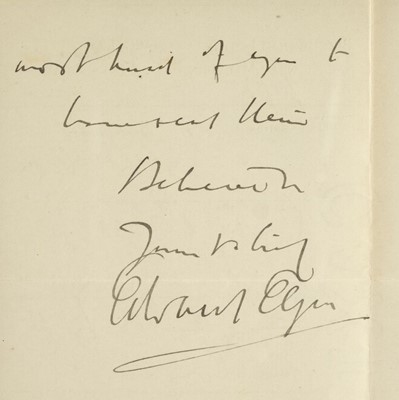 most kind of you to
have sent them
Believe me
Yours truly
Edward Elgar